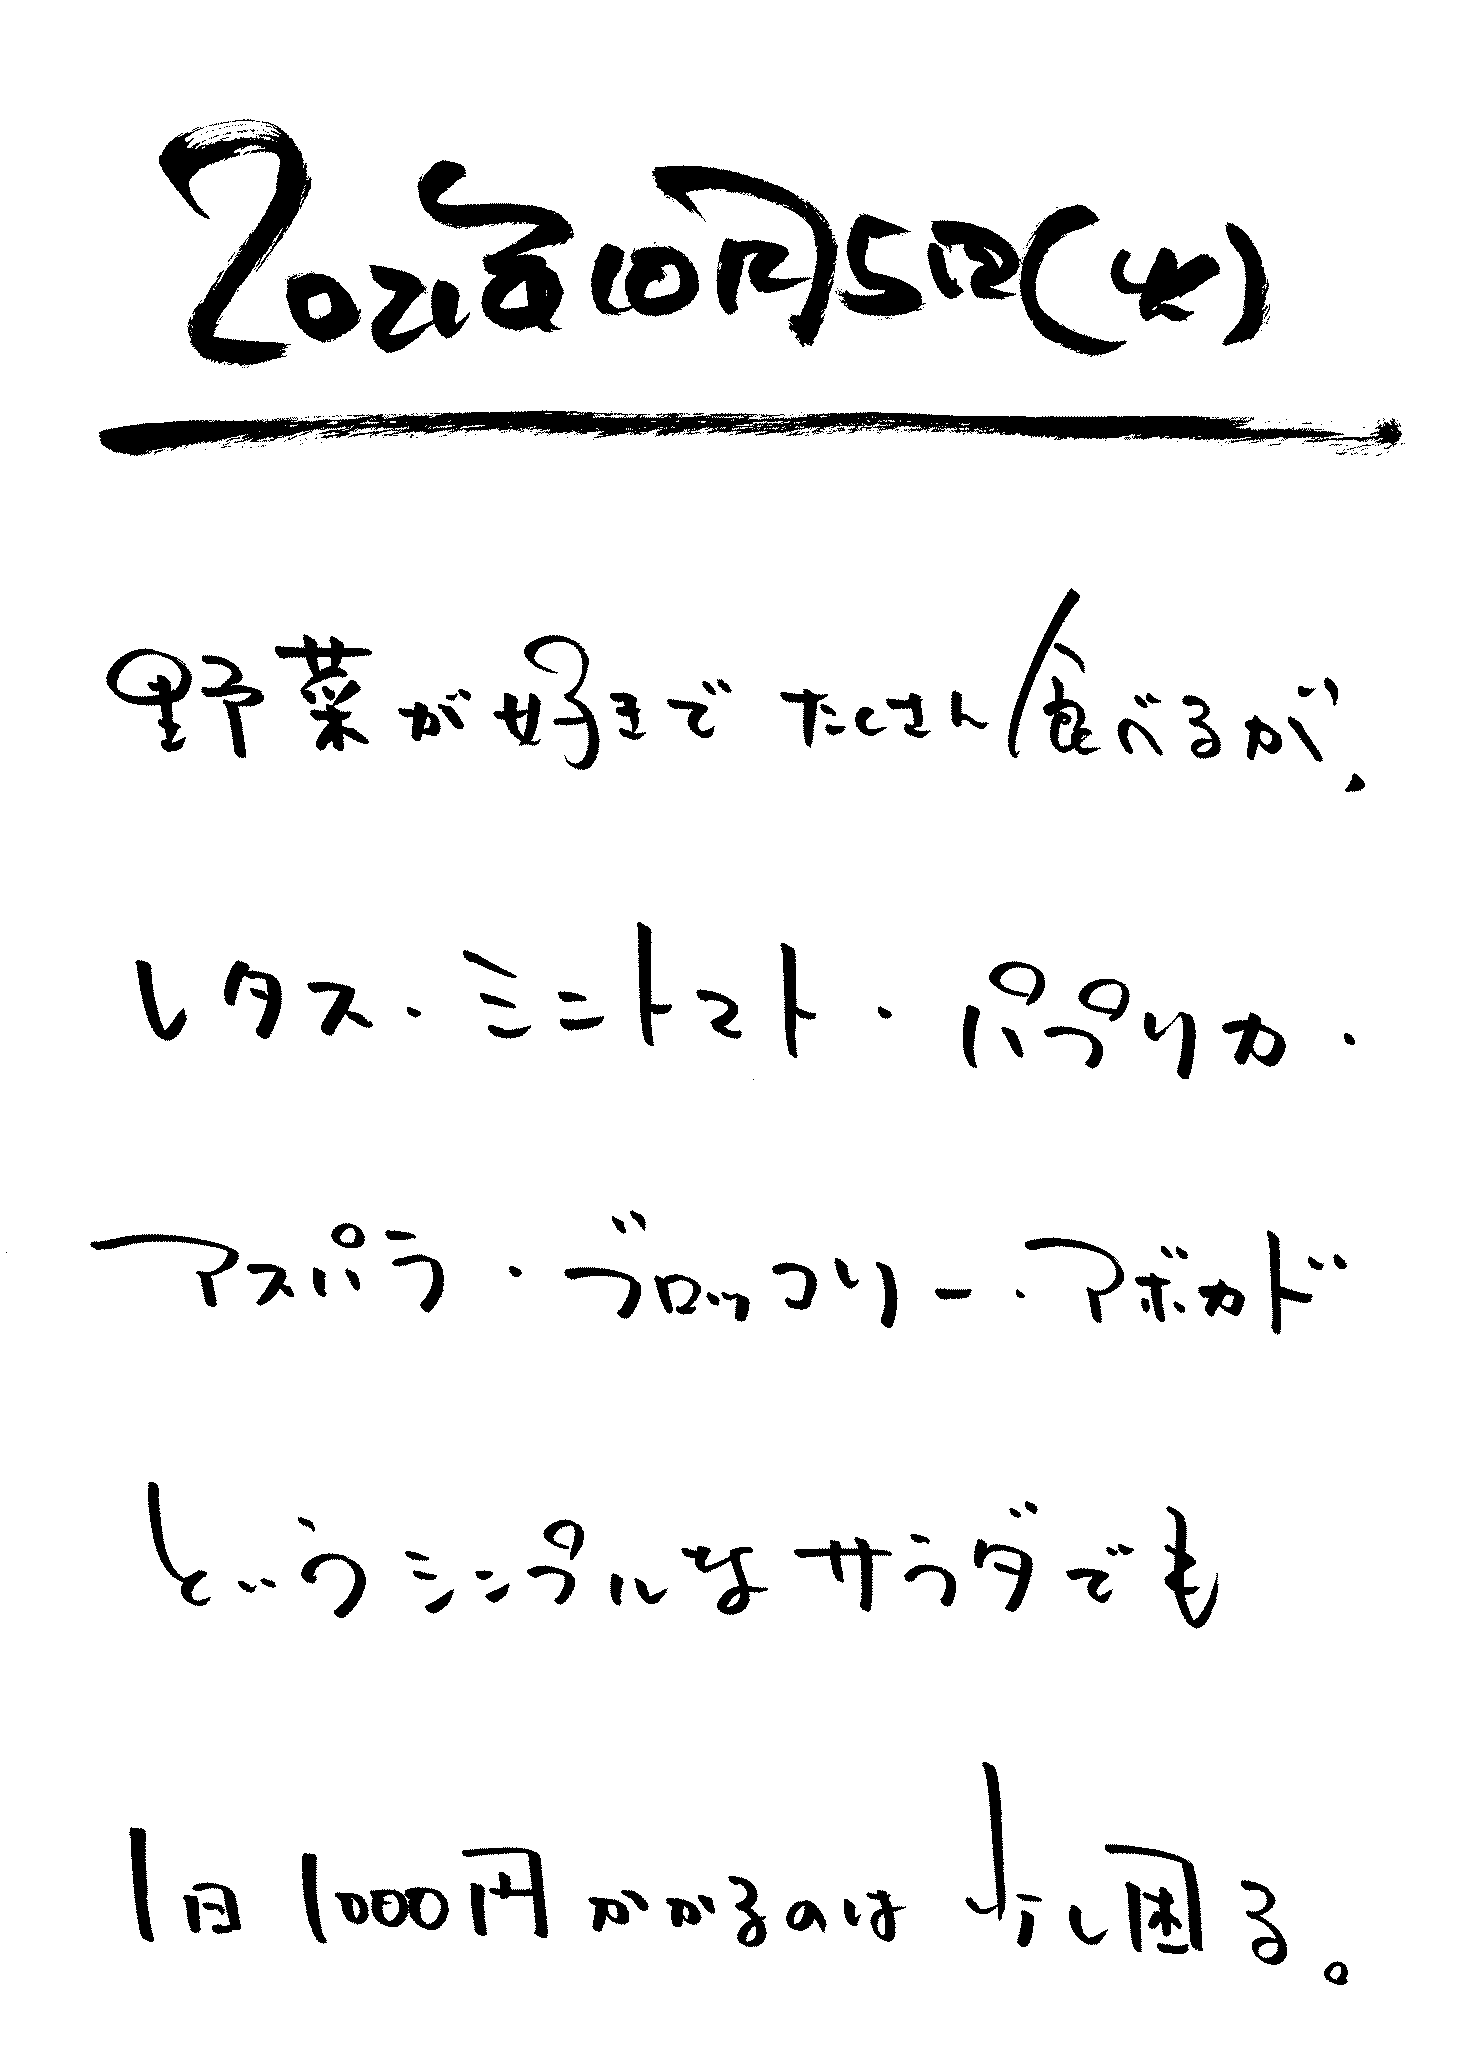 2021年10月5日(火)
野菜が好きでたくさん食べるが、
レタス・ミニトマト・パプリカ・
アスパラ・ブロッコリー・アボカド
というシンプルなサラダでも
1日1000円かかるのは少し困る。